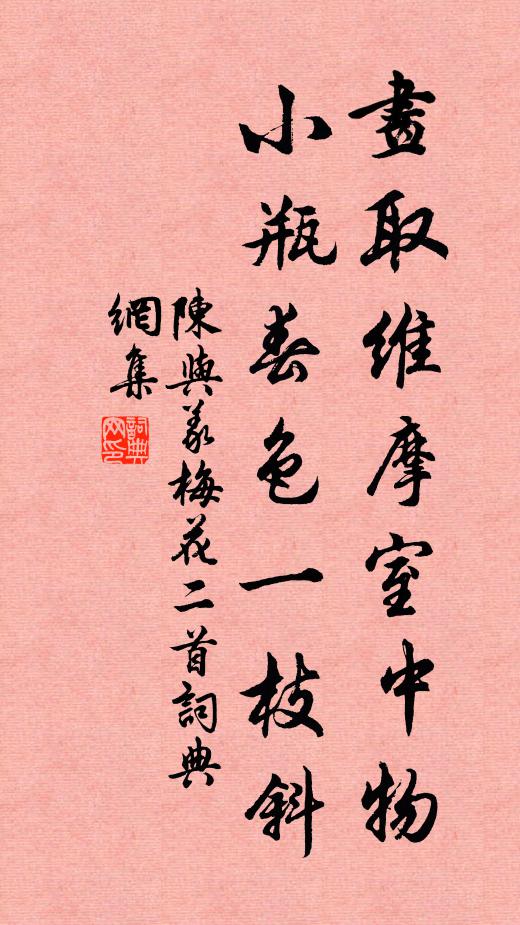 畫取維摩室中物
小瓶春色一枝斜
陳與義梅花二首詞典
網集
詞典
网印